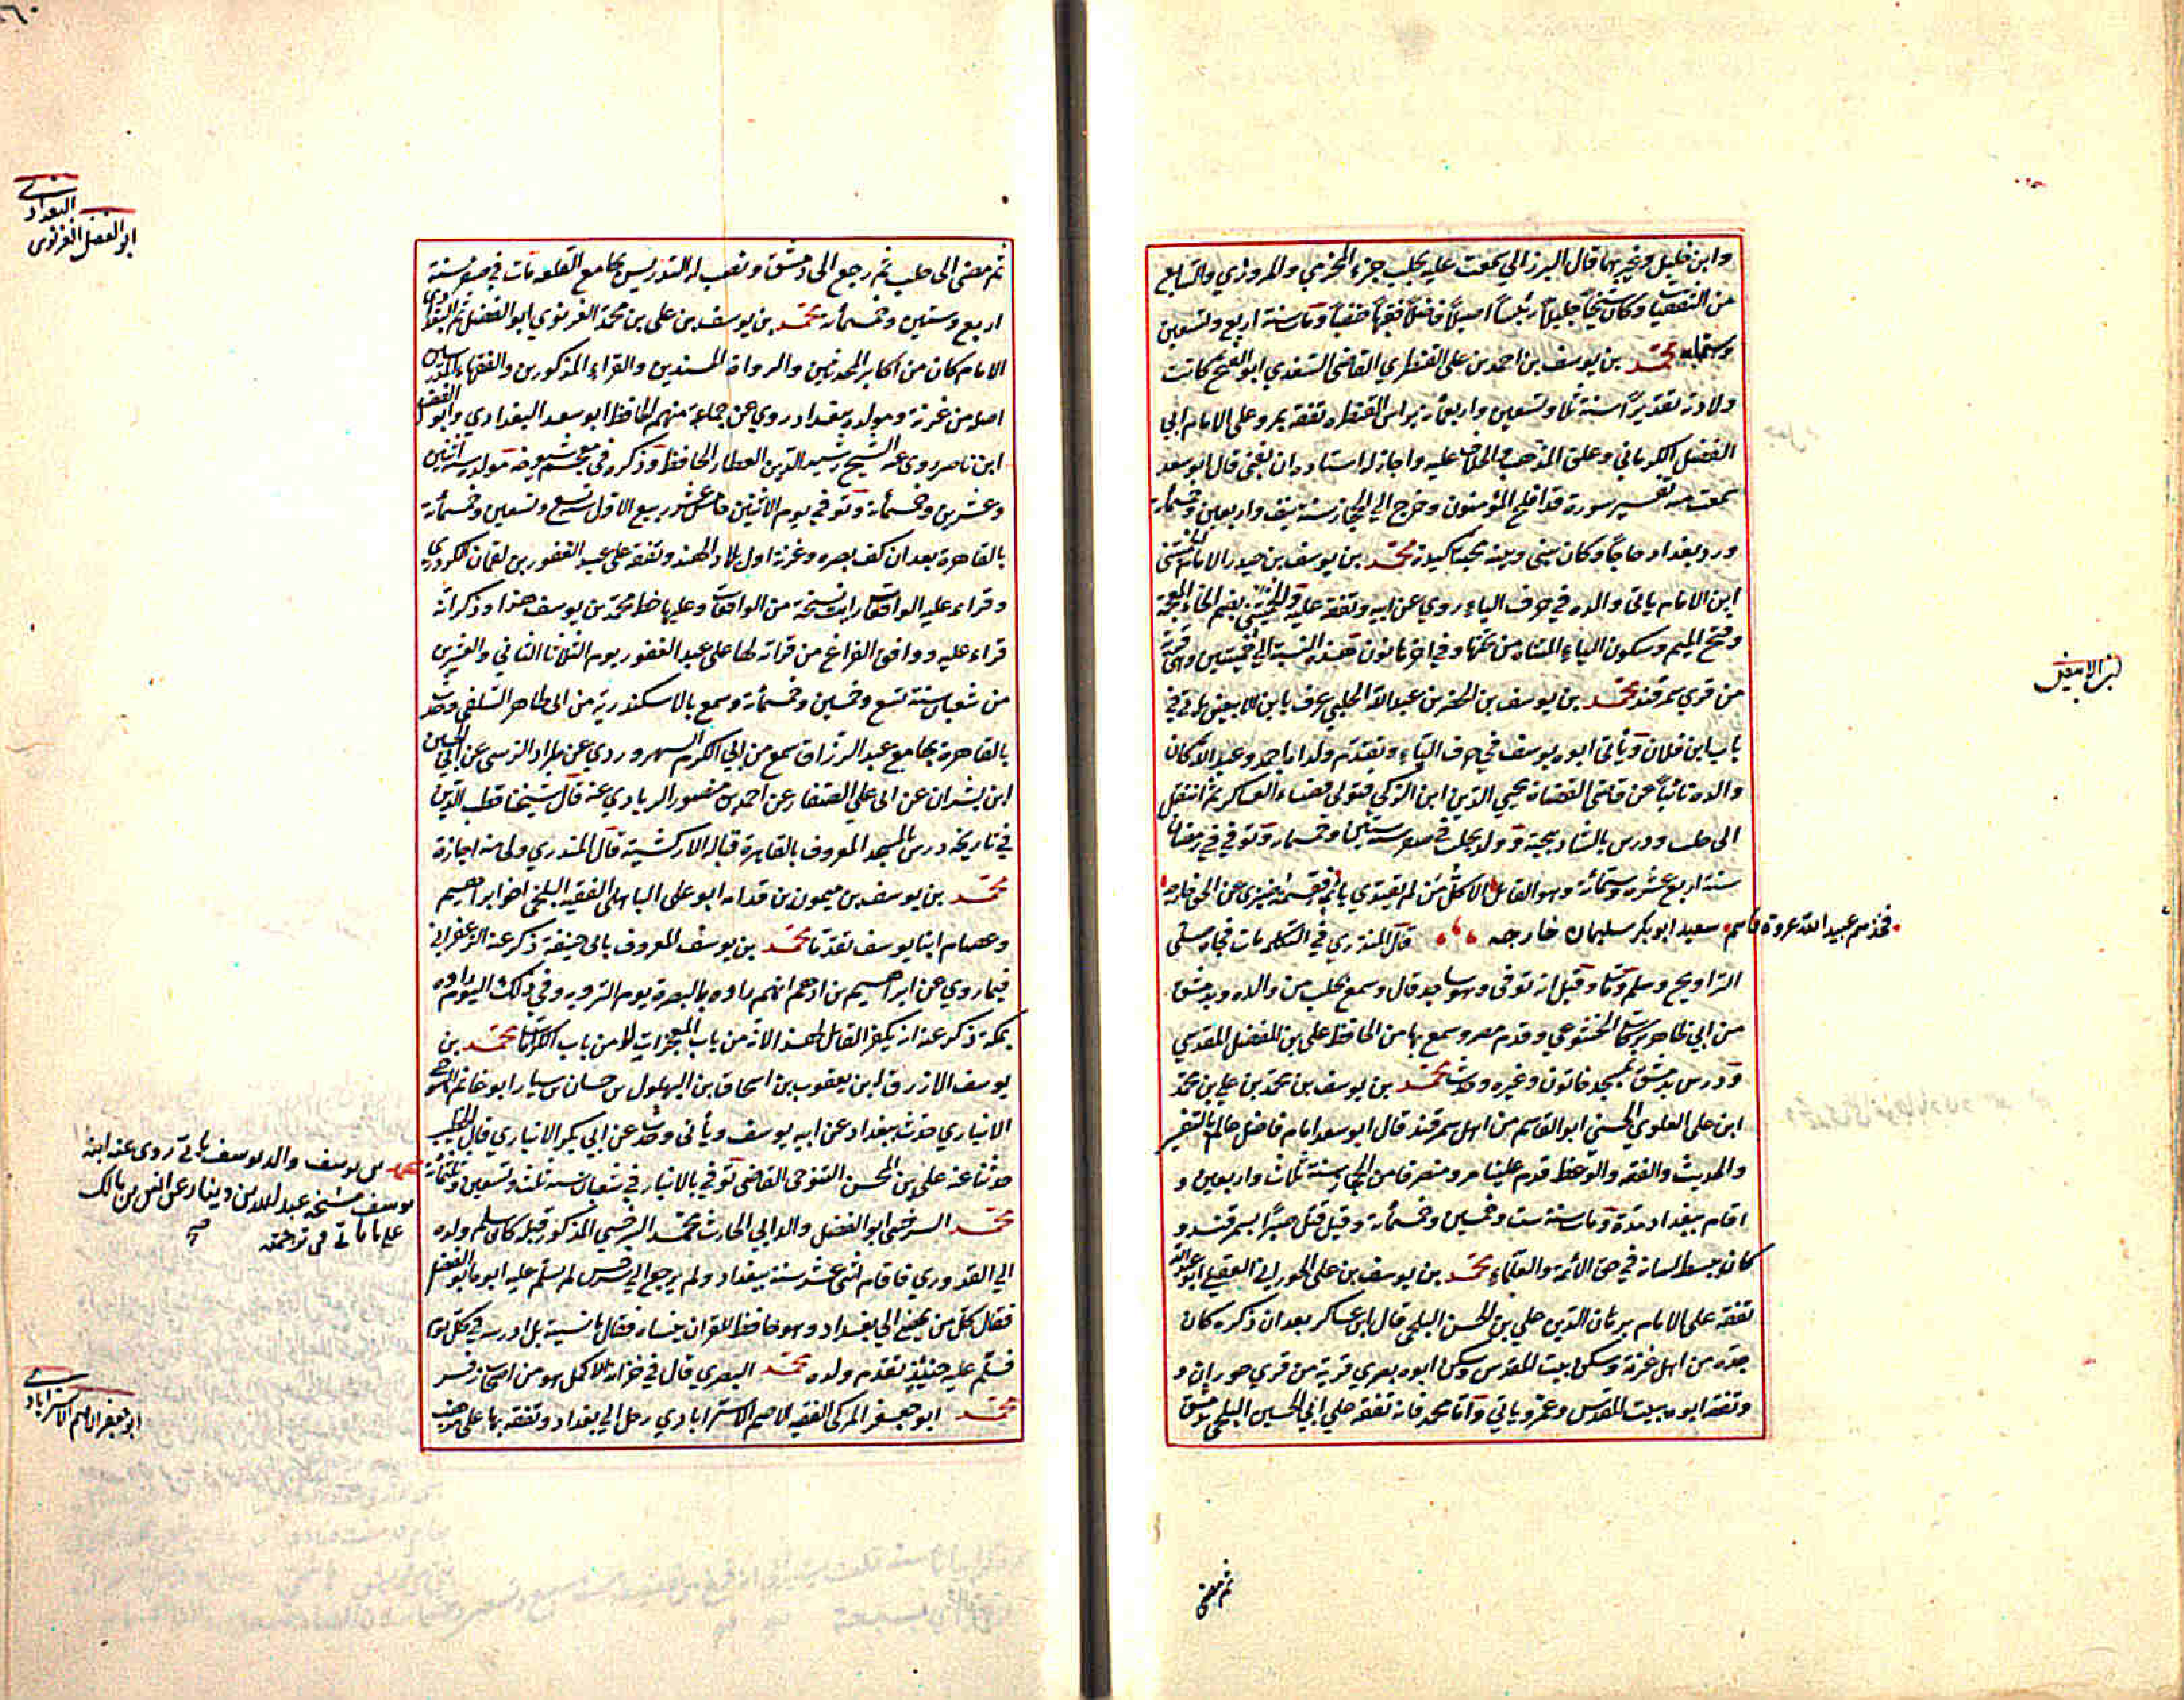 وابن خليل وغيرهما قال البرزالي سمعت عليه بحلب جزء المخرمي والمروزي والسابع
من الثقفيات وكان شيخا جليلا رئيسا اصيلا فاضلا فقيها حنفيا ومات سنة اربع وتسعين
وستمايه محمد بن يوسف بن احمد بن على القنطري القاضى السغدي ابو الفتح كانت
ولادته تقديرا سنة ثلاث وتسعين واربعمأة براس القنطره تفقه بمرو على الامام ابي
الفضل الكرماني وعلق المذهب والخلاف عليه واجاز له استاده ان يفتي قال ابو سعد
سمعت منه تفسير سورة قد افلح المؤمنون وخرج الي الحجاز سنة نيف واربعين وخمسمأة
ورد بغداد حاجا وكان بيني وبينه محبة اكيدة محمد بن يوسف بن حيدر الامام الخميثني
ابن الامام ياتي والده في حرف الياء روي عن ابيه وتفقه عليه والخميثني بضم الخاء المعجمة
وفتح الميم وسكون الياء المثناه من تحتها وفي اخرها نون هذه النسبة الي خميثن وهي قرية
من قري سمرقند محمد بن يوسف بن الخضر بن عبد الله الحلبي عرف بابن الابيض ياتي في
باب ابن فلان ويأتي ابوه يوسف في حرف الياء وتقدم ولداه احمد وعبد الله كان
والده نائبا عن قاضى القضاة محيي الدين ابن الزكي فتولي قضاء العساكر ثم انتقل
الى حلب ودرس بالشاذبخية وولد بحلب في صفر سنة ستين وخمسمأة وتوفي في رمضان
سنة اربع عشره وستمأئة وهو القائل الا كل من لم يقتدي بائمة فقسمته ضيزى عن الحق خارجه
فخذهم عبيد الله عروة قاسم سعيد ابو بكر سليمان خارجه قال المنذري في التكلمة مات فجاة صلى
التراويح وسلم ومات وقيل انه توفى وهو ساجد قال وسمع بحلب من والده وبدمشق
من ابي طاهر بركات الخشوعي وقدم مصر وسمع بها من الحافظ على بن المفضل المقدسي
ودرس بدمشق بمسجد خاتون وغيره وحدث محمد بن يوسف بن محمد بن علي بن محمد
ابن على العلوي الحسني ابو القاسم من اهل سمرقند قال ابو سعد امام فاضل عالم بالتفسير
والحديث والفقه والوعظ قدم علينا مرو منصرفا من الحجاز سنة ثلاث واربعين و
اقام ببغداد مدة ومات سنة ست وخمسين وخمسمأة وقيل قتل صبرا بسمرقند و
كان يبسط لسانه في حق الأئمة والعلماء محمد بن يوسف بن على الحوراني الفقيه ابو عبد الله
تفقه على الامام برهان الدين علي بن الحسن البلخي قال ابن عساكر بعد ان ذكره كان
جده من اهل غزنة وسكن بيت المقدس وسكن ابوه بصري قرية من قري حوران و
وتفقه ابوه ببيت المقدس وعمر وياتي واما محمد فانه تفقه علي ابي الحسين البلخي بدمشق
ثم مضى
ابن الابيض
ثم مضى الى حلب ثم رجع الى دمشق ونصب له التدريس بجامع القلعة مات في صفر سنة
اربع وستين وخمسمأة محمد بن يوسف بن على بن محمد الغزنوي ابو الفضل ثم البغدادي
الامام كان من اكابر المحدثين والرواة المسندين والقراء المذكورين والفقهاء المدرسين
اصله من غزنة ومولده ببغداد روي عن جماعة منهم الحافظ ابو سعد البغدادي وابو الفضل
ابن ناصر روى عنه الشيخ رشيد الدين العطار الحافظ وذكره في معجم شيوخه مولده سنة اثنتين
وعشرين وخمسمأة وتوفي يوم الاثنين خامس عشر ربيع الاول تسع وتسعين وخمسمأة
بالقاهرة بعد ان كف بصره وغزنة اول بلاد الهند وتفقه على عبد الغفور بن لقمان الكردري
وقراء عليه الواقعات رايت نسخة من الواقعات وعليها خط محمد بن يوسف هذا وذكر انه
قراء عليه ووافق الفراغ من قراته لها على عبد الغفور يوم الثلاثا الثاني والعشرين
من شعبان سنة تسع وخمسين وخمسمأة وسمع بالاسكندرية من ابي طاهر السلفي وحدث
بالقاهرة بجامع عبد الرزاق سمع من ابي الكرم السهروردي عن طراد الزينبي عن ابي الحسين
ابن بشران عن ابي علي الصفار عن احمد بن منصور الرمادي عنه قال شيخنا قطب الدين
في تاريخه درس بالمسجد المعروف بالقاهرة قبالة الاركشية قال المنذري ولي منه اجازة
محمد بن يوسف بن ميمون بن قدامه ابو على الباهلى الفقيه البلخي اخو ابراهيم
وعصام ابنا يوسف تقدما محمد بن يوسف المعروف بابي حنيفة ذكر عنه الزعفراني
فيما روي عن ابراهيم بن ادهم انهم راوه بالبصرة يوم التروية وفي ذلك اليوم راوه
بمكة ذكر عنه انه يكفر القائل لهذا لانه من باب المعجزات لا من باب الكرامات محمد بن
يوسف الازرق ابن يعقوب بن اسحاق بن البهلول بن حسان بن سيار ابو غانم التنوخي
الانباري حدث ببغداد عن ابيه يوسف ويأتى وحدث عن ابي بكر الانباري قال الخطيب
حدثنا عنه على بن المحسن التنوخى القاضى توفي بالانبار في شعبان سنة ثلث وتسعين وثلثمأئة
محمد السرخسى ابو الفضل والد ابي الحارث محمد السرخسي المذكور قبله كان سلم ولده
الي القدوري فاقام اثنى عشر سنة ببغداد ولم يرجع الي سرخس لم يسلم عليه ابوه ابو الفضل
فقال كل من يجئ الي بغداد وهو حافظ للقران ينساه فقال ما نسيته بل ادرسه في كل يوم
فسلم عليه حينئذ تقدم ولده محمد البصري قال في خزانة الاكمل هو من اصحاب زفر
محمد ابو جعفر المركي الفقيه الاصم الاستراباذي رحل الي بغداد وتفقه بها على مذهب
البغدادي
ابو الفضل الغزنوى
محمد بن يوسف والد يوسف ياتى روى عنه ابنه
يوسف نسخة عبد الله بن دينار عن انس بن مالك
على ما ياتى فى ترجمته
ابو جعفر الاصم الاستراباذى